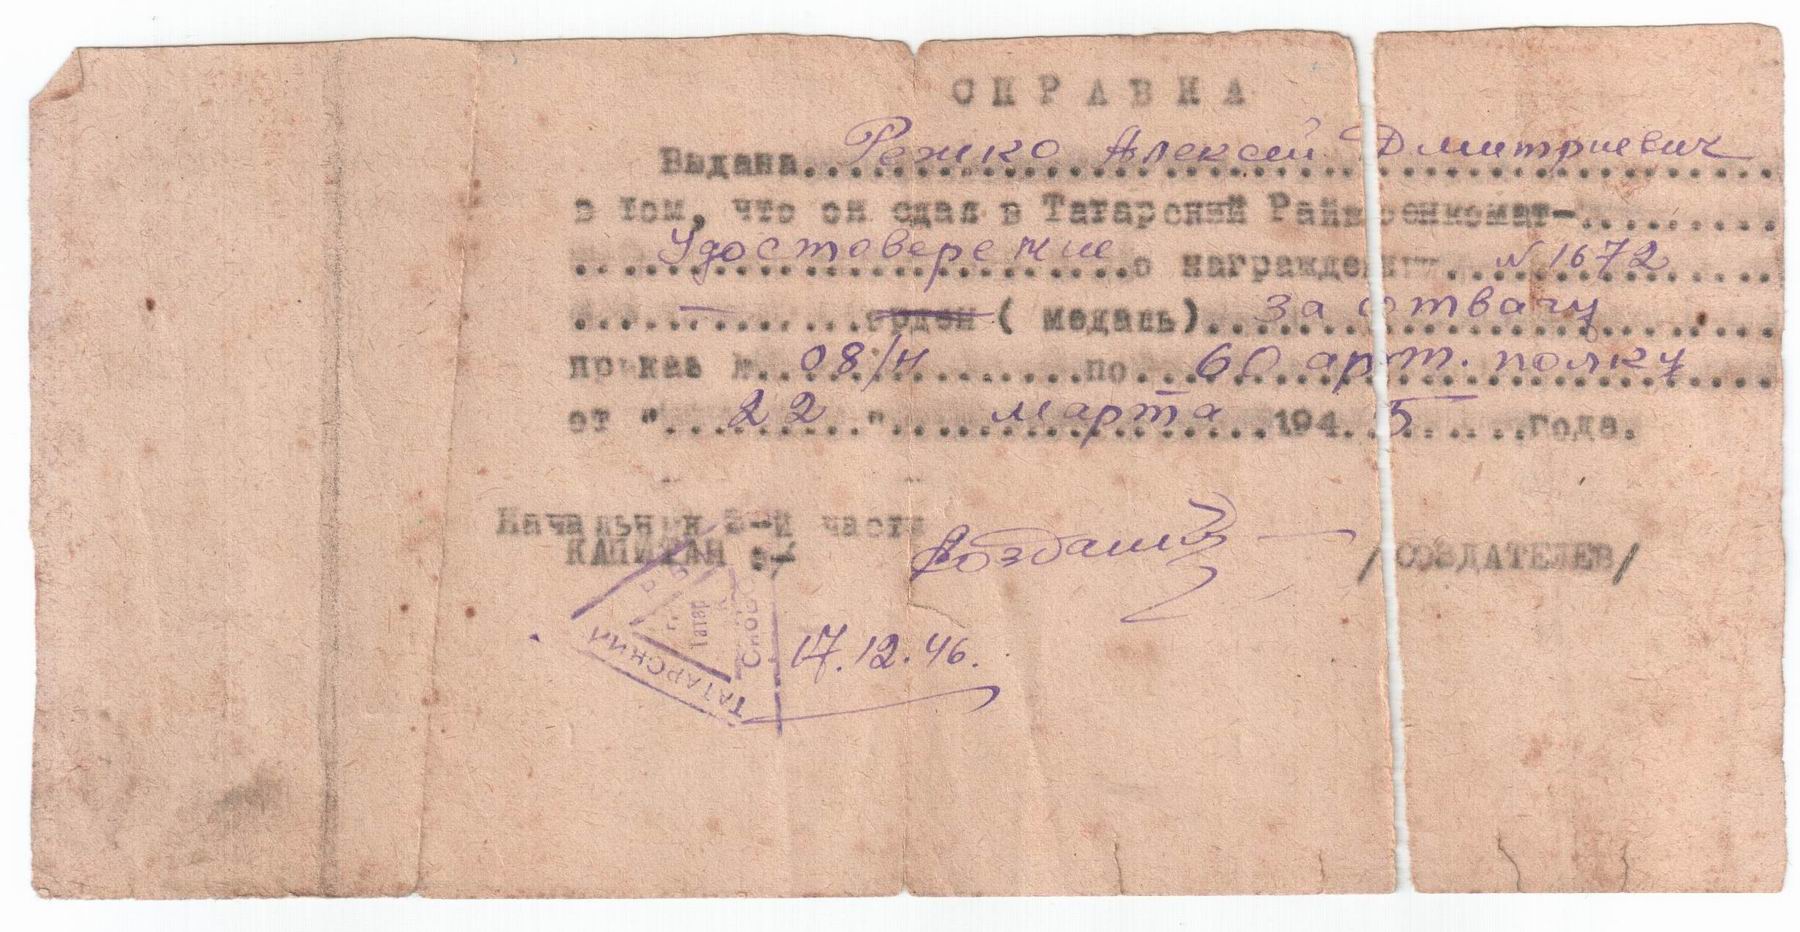 СПРАВКА
Выдана..Режко Алексей Дмитриевич
в том, что он сдал в Татарский Райвоенкомат-.........
Удостоверение о награждении N1672
— орден ( медаль) за отвагу
приказ № 08/н по 60 арт. полку
от "22" марта 1945 года.
Начальник 2-й части
КАПИТАН
/СОЗДАТЕЛЕВ/
ТАТАРСКИЙ
г. Татар
17.12.46.